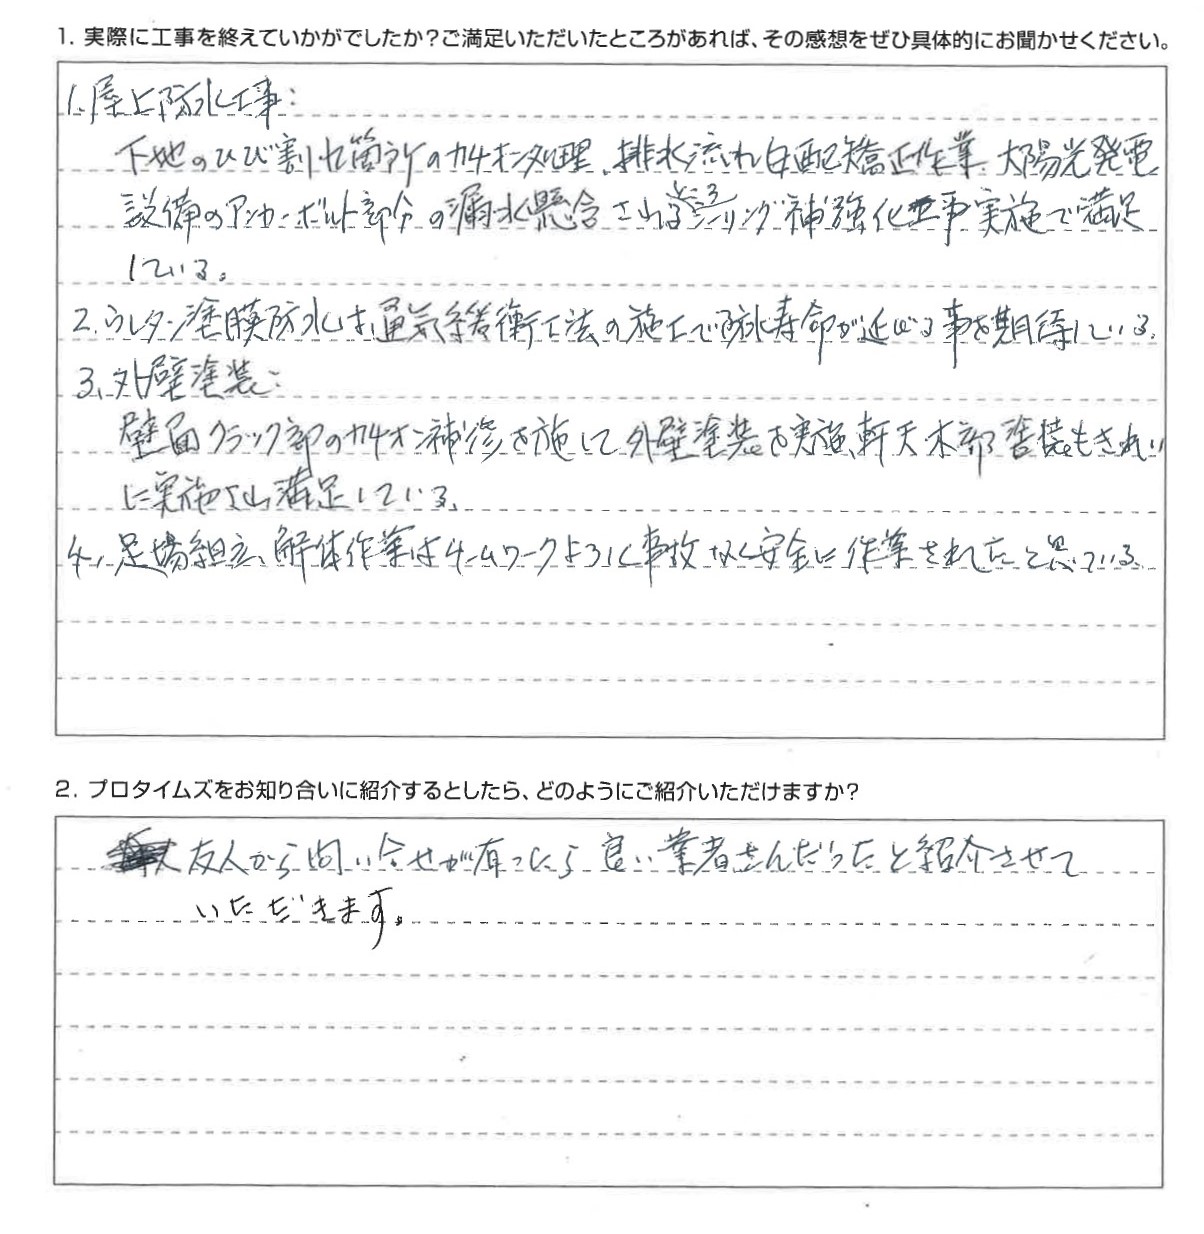 1. 実際に工事を終えていかがでしたか?ご満足いただいたところがあれば、その感想をぜひ具体的にお聞かせください。
1. 屋上防水工事:
下地のひび割れ箇所のカチオン処理、排水流れ勾配矯正作業、太陽光発電
設備のアンカーボルト部分の漏水懸念されるところシーリング補強化工事実施で満足
している。
2. ウレタン塗膜防水は、通気緩衝工法の施工で防水寿命が延びる事を期待している。
3. 外壁塗装:
壁面クラック部のカチオン補修を施して外壁塗装を実施、軒天木部塗装もきれい
に実施され満足している。
4. 足場組立、解体作業はチームワークよろしく事故なく安全に作業されたと思っている。
2. プロタイムズをお知り合いに紹介するとしたら、どのようにご紹介いただけますか?
友人から問い合せが有ったら良い業者さんだったと紹介させて
いただきます。